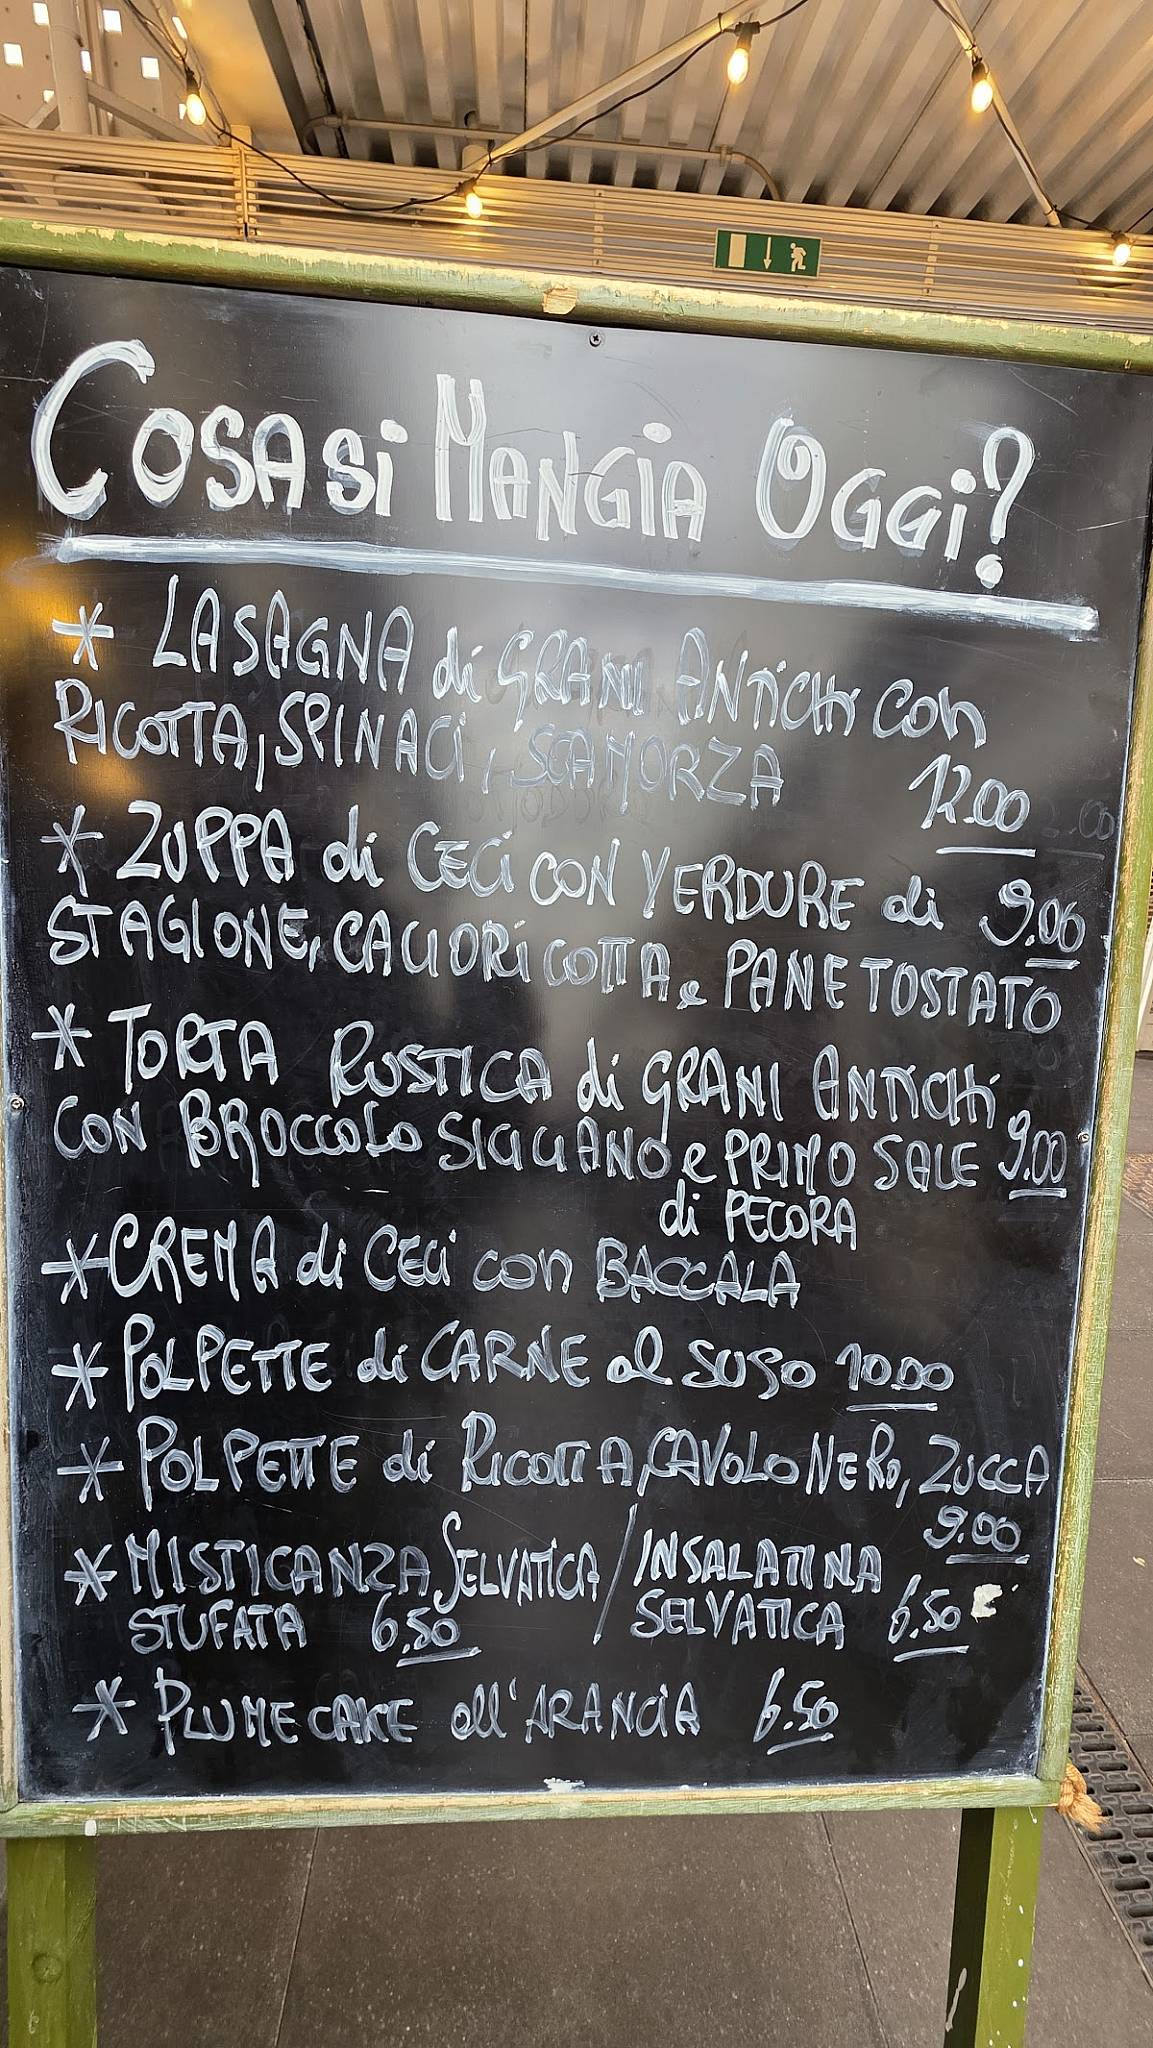 COSA Si MANGiA OGGi?
* LASAGNA di GRANI ANTiCHi CON
RICOTTA, SPINACi, SCAMORZA 12.00
* ZUPPA di CECi CON VERDURE di 9.00
STAGIONE, CALIORicOTTA e PANE TOSTATO
* TORTA RUSTICA di GRANI ANTICHi
CON BROCCOLO SICILIANO e PRIMO SALE 9.00
di PECORA
* CREMA di CECi con BACCALA
* POLPETTE di CARNE al SUGO 10.00
* POLPETTE di RICOTTA, CAVOLO NERO, ZUCCA
9.00
* MISTICANZA SELVATICA / INSALATINA
STUFATA 6.50 / SELVATICA 6.50
* PLUMECAKE all'ARANCiA 6.50